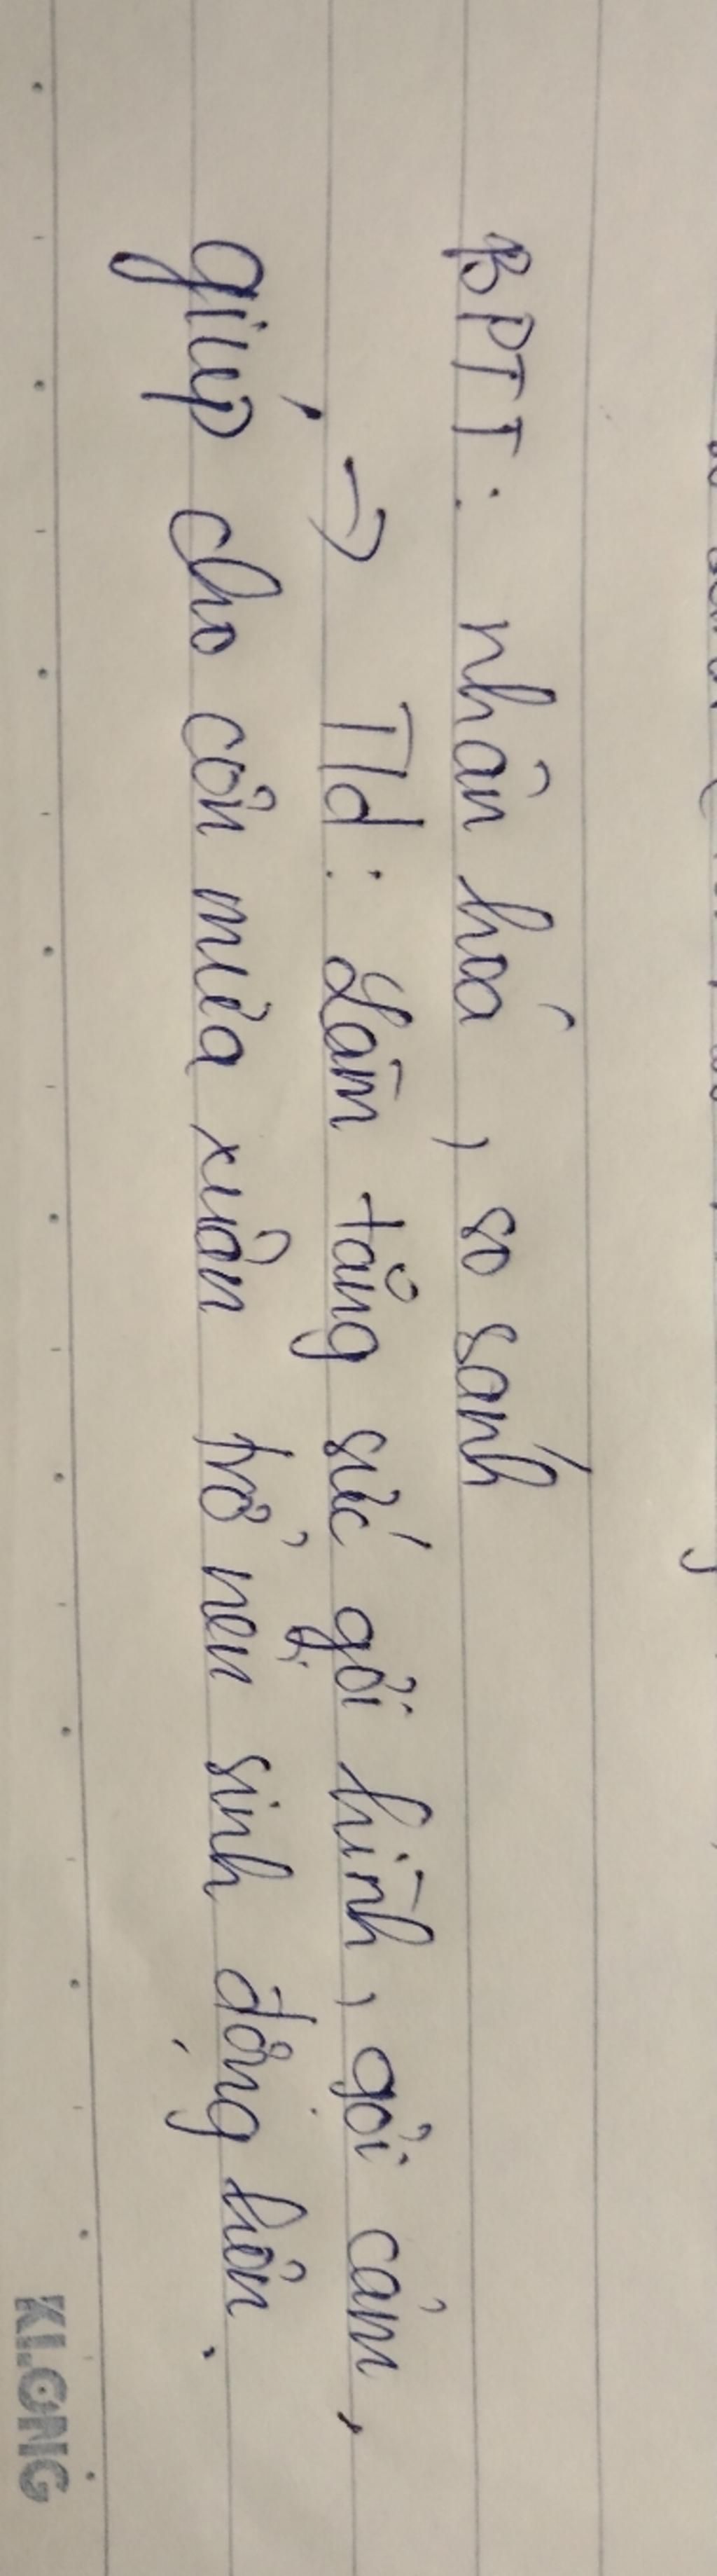 BPTT: nhân hoá, so sánh
→ T/d: Làm tăng sức gợi hình, gợi cảm,
giúp cho cơn mưa xuân trở nên sinh động hơn.
KLONG